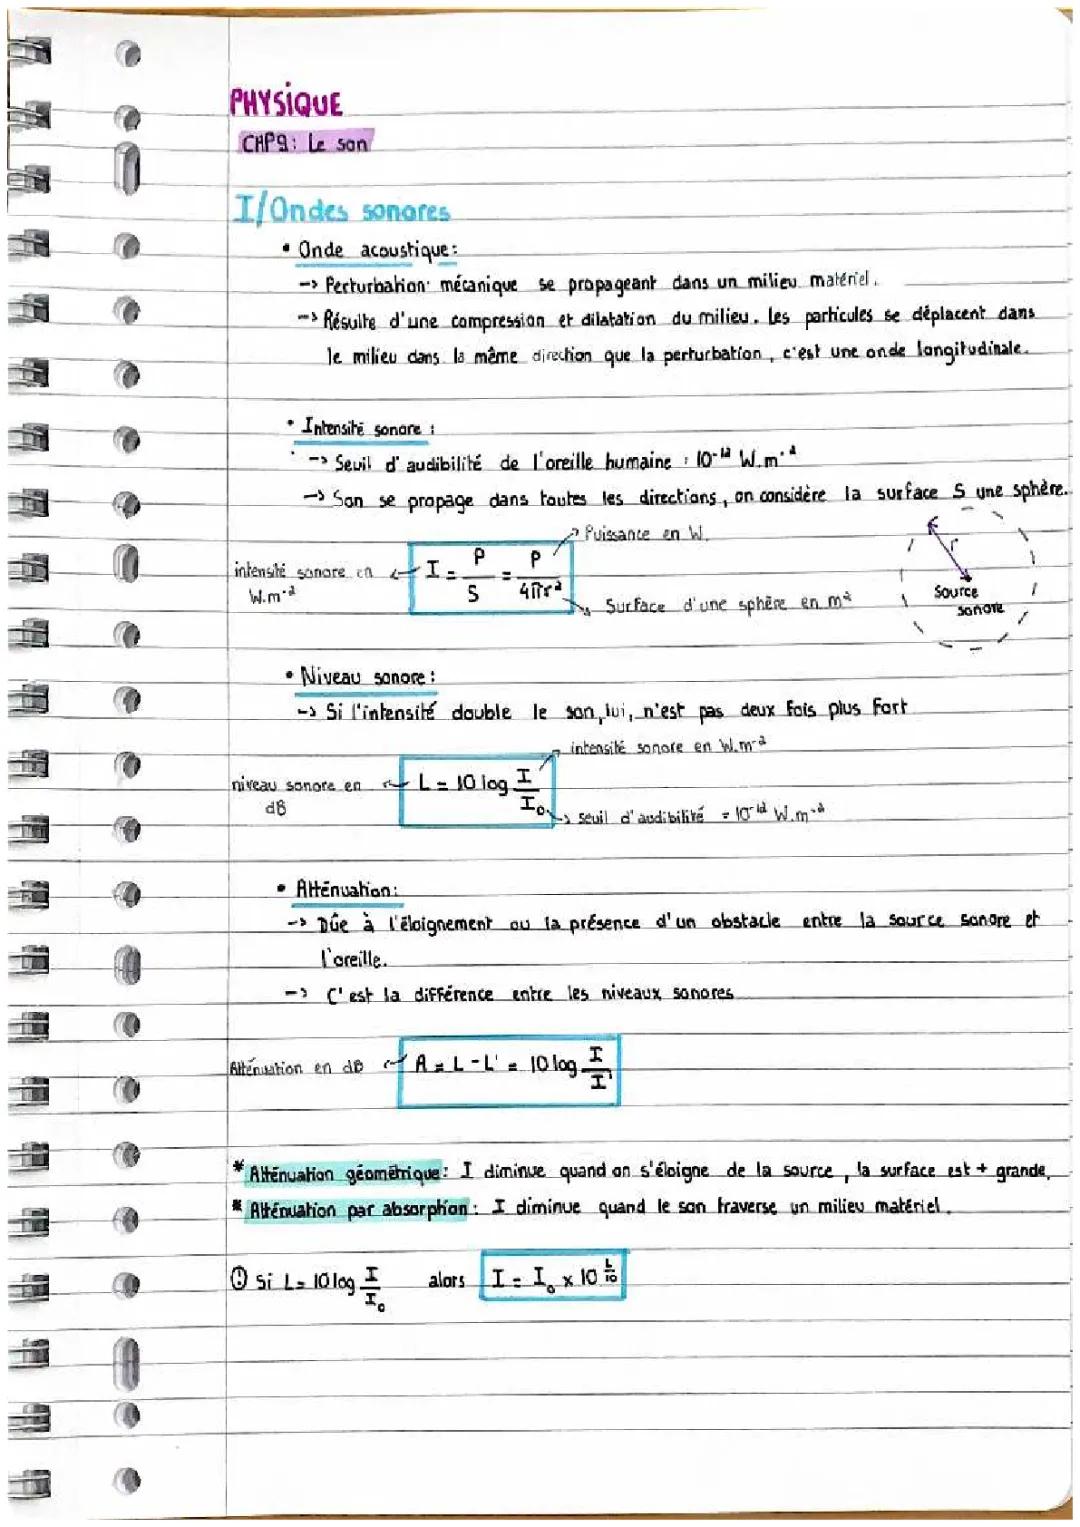 PHYSIQUE
CHP9: Le son
I/Ondes sonores
• Onde acoustique:
-> Perturbation mécanique se propageant dans un milieu matériel.
-> Résulte d'une compression et dilatation du milieu. Les particules se déplacent dans
le milieu dans la même direction que la perturbation, c'est une onde longitudinale.
• Intensité sonore :
-> Seuil d'audibilité de l'oreille humaine : 10⁻¹² W.m⁻²
-> Son se propage dans toutes les directions, on considère la surface S une sphère.
Puissance en W.
intensité sonore en W.m⁻²
I = P/S = P/4πr²
Surface d'une sphère en m²
r
Source sonore
• Niveau sonore :
-> Si l'intensité double le son, lui, n'est pas deux fois plus fort
intensité sonore en W.m⁻²
niveau sonore en dB
L = 10 log I/I₀
seuil d'audibilité = 10⁻¹² W.m⁻²
• Atténuation:
-> Dûe à l'éloignement ou la présence d'un obstacle entre la source sonore et
l'oreille.
-> C'est la différence entre les niveaux sonores
Atténuation en dB
A = L - L' = 10 log I/I'
* Atténuation géométrique : I diminue quand on s'éloigne de la source, la surface est + grande.
* Atténuation par absorption : I diminue quand le son traverse un milieu matériel.
! Si L = 10 log I/I₀ alors I = I₀ x 10^(L/10)